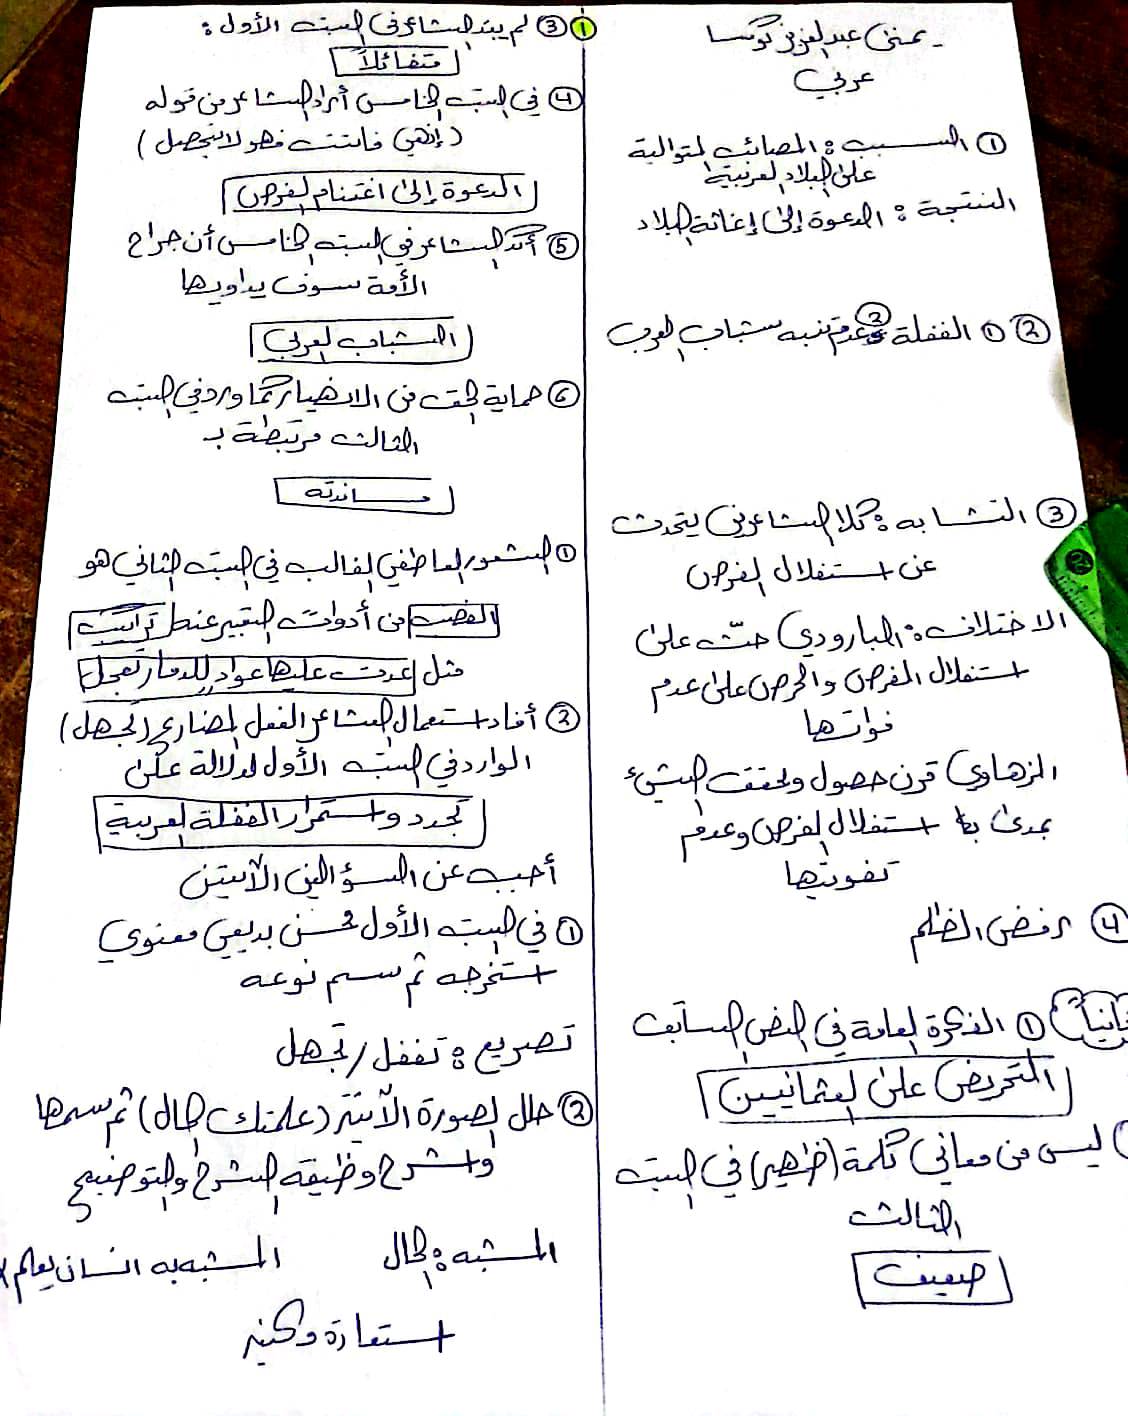 - يمنى عبد العزيز كوسا
عربي
① السبب : المصائب المتوالية
على البلاد العربية
النتيجة : الدعوة إلى إغاثة البلاد
② ① الغفلة ② وعدم تنبه شباب العرب
③ التشابه : كلا الشاعرين يتحدث
عن استغلال الفرص
الاختلاف : البارودي حثّ على
استغلال الفرص والحرص على عدم
فواتها
الزهاوي قرن حصول وتحقق الشيء
بمدى استغلال الفرص وعدم
تفويتها
④ رفض الظلم
ثانياً ① الفكرة العامة في النص السابق
التحريض على العثمانيين
ليس من معاني كلمة (ظهير) في البيت
الثالث
ضعيف
1
③ لم يبد الشاعر في البيت الأول :
متفائلاً
④ في البيت الخامس أراد الشاعر من قوله
(إنهي فاتت فهو لا يتحصل)
الدعوة إلى اغتنام الفرص
⑤ أكد الشاعر في البيت الخامس أن جراح
الأمة سوف يداويها
الشباب العربي
⑥ حماية الحق من الانهيار كما ورد في البيت
الثالث مرتبطة بـ
مساندته
① الشعور العاطفي الغالب في البيت الثاني هو
الغضب من أدوات التعبير عنه تراكيب
مثل عدت عليها عواد للدمار تعجل
② أفاد استعمال الشاعر الفعل المضارع (تجهل)
الوارد في البيت الأول للدلالة على
تجدد واستمرار الغفلة العربية
أجب عن السؤالين الآتيين
① في البيت الأول محسن بديعي معنوي
استخرجه ثم سم نوعه
تصريع : تغفل / تجهل
② حلل الصورة الآتية (علمتك الحال) ثم سمها
واشرح وظيفة الشرح والتوضيح
المشبه : الحال المشبه به انسان يعلم
استعارة مكنية
2